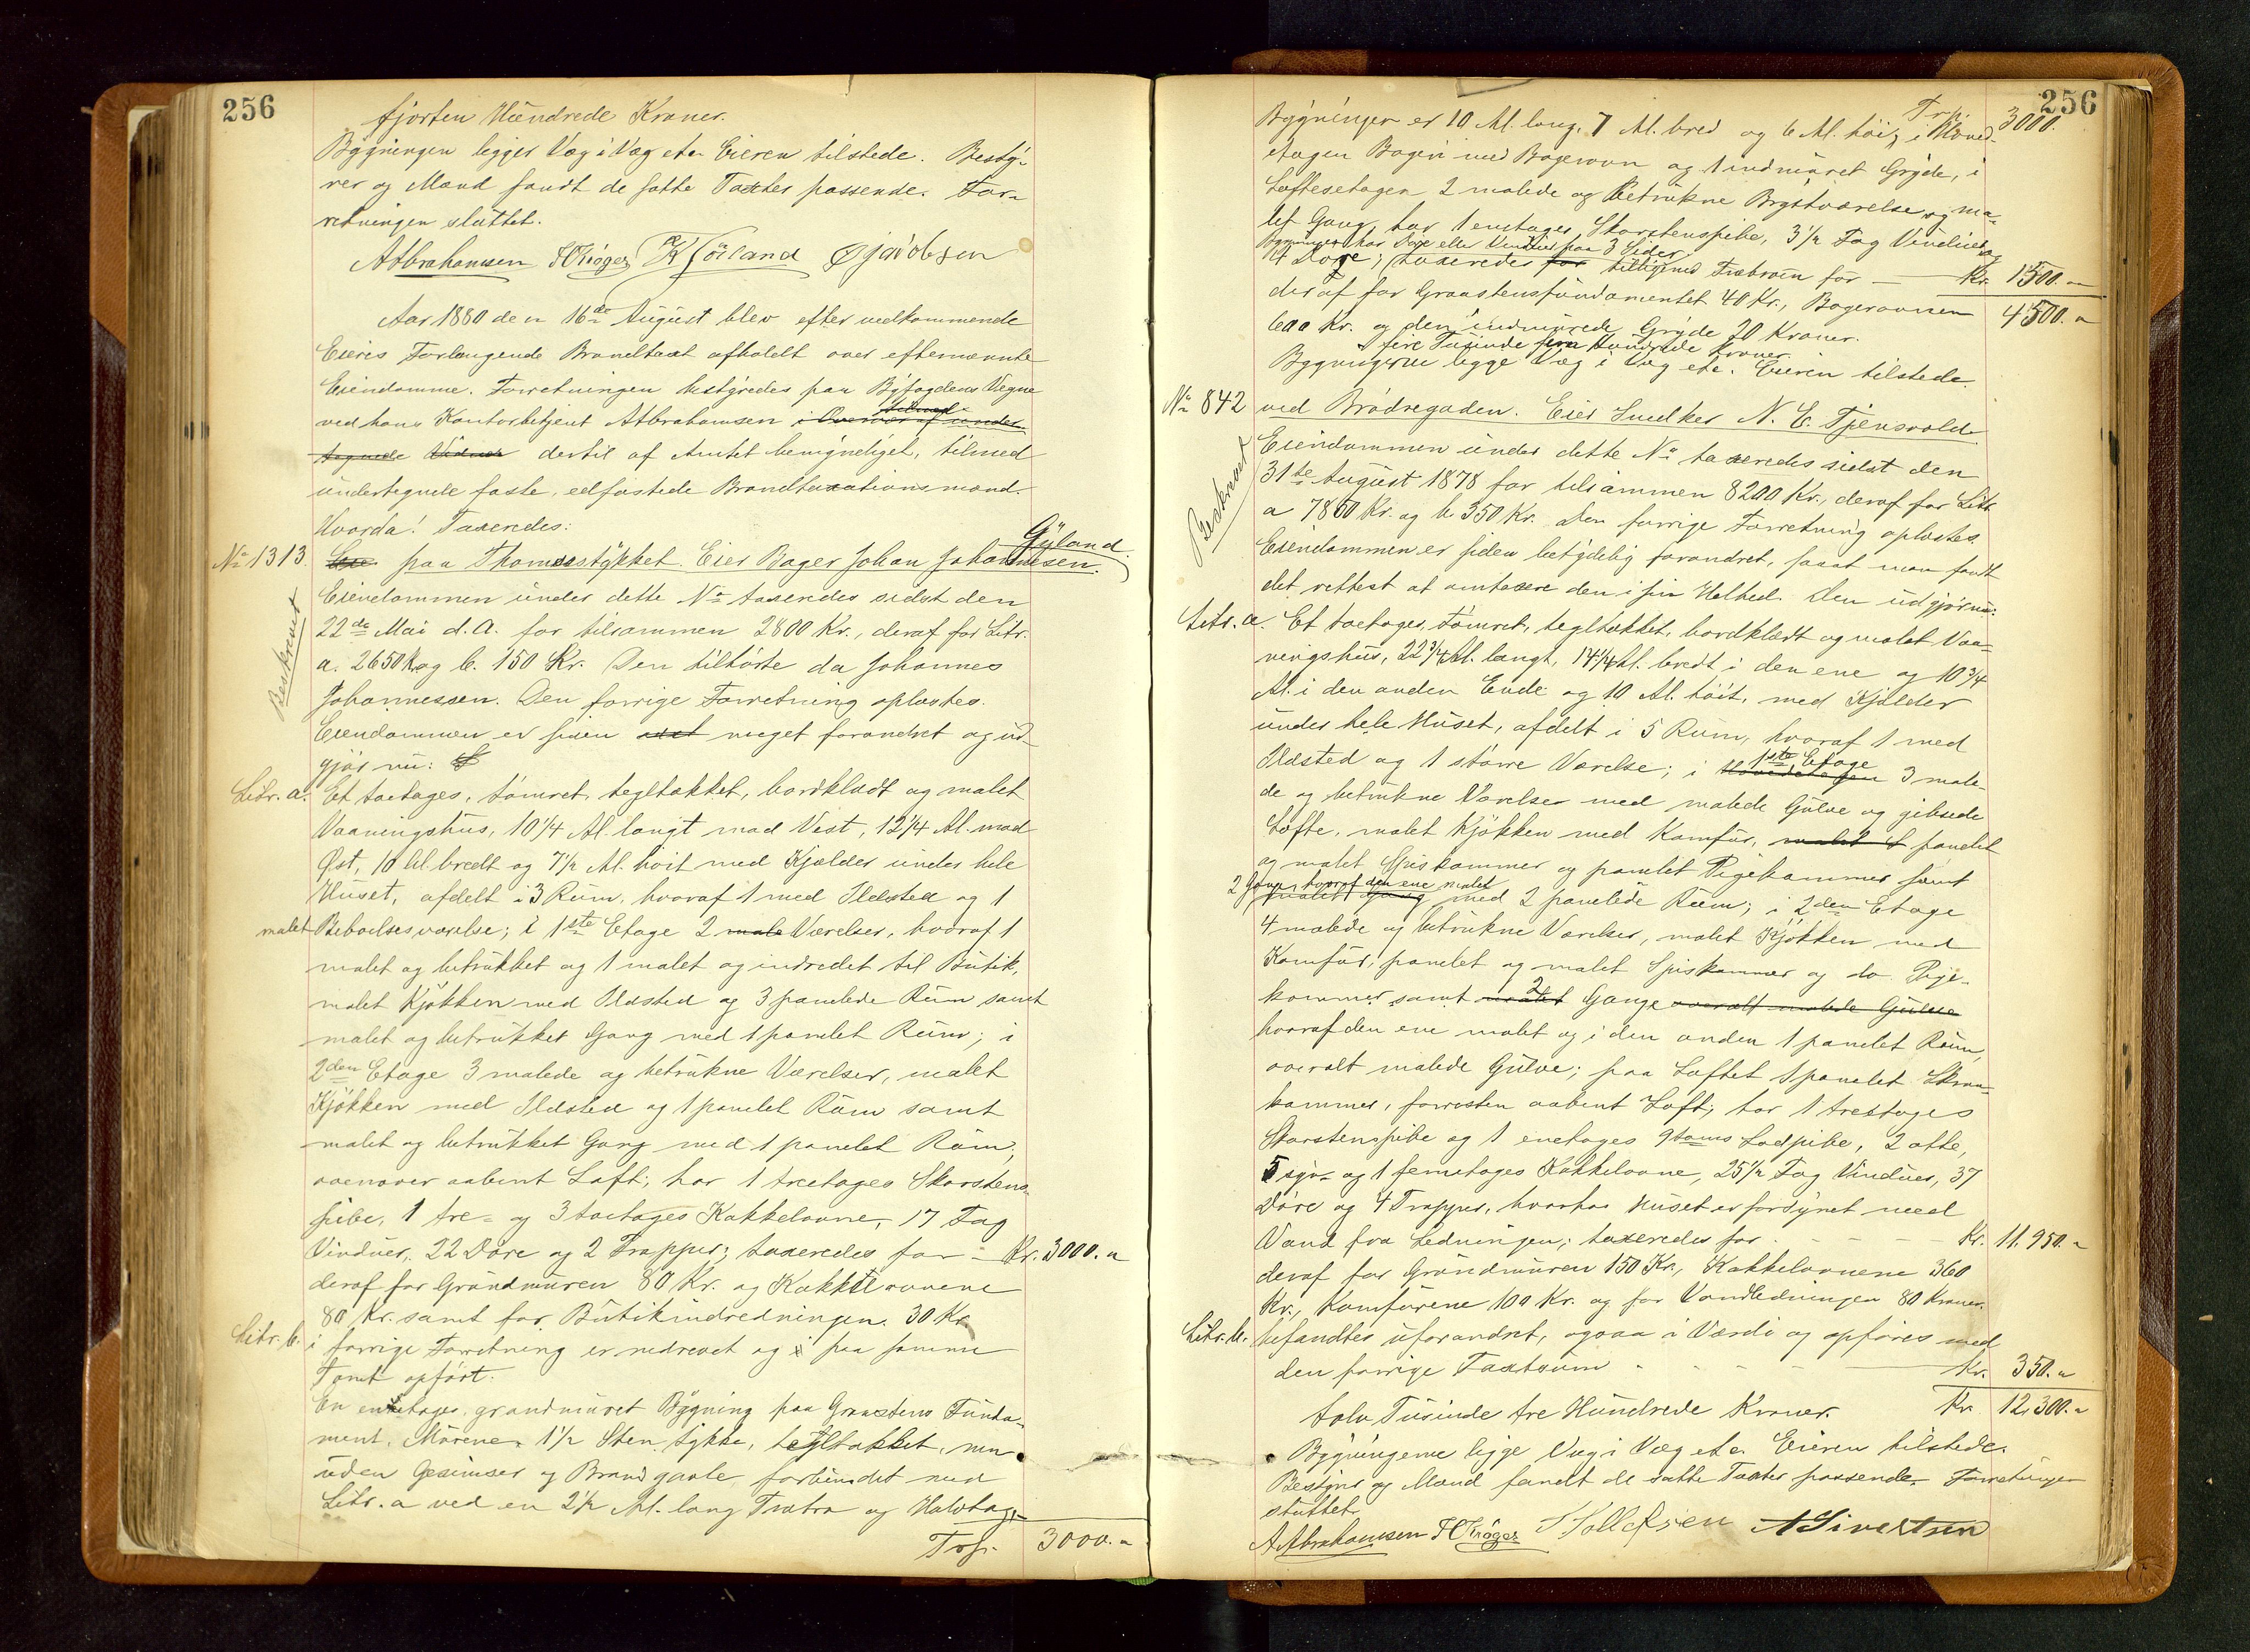 256
fjorten Hundrede Kroner.
Bygningen ligger Væg i Væg etc. Eieren tilstede. Besty-
rer og Mænd fandt de satte Taxter passende. For-
retningen sluttet.
A Abrahamsen F Krøger K Jörland O Jacobsen
Aar 1880 den 16de August blev efter vedkommende
Eieres Forlangende Brandtaxt afholdt over efternævnte
Eiendomme. Forretningen bestyredes paa Byfogdens Vegne
ved hans Kontorbetjent A Abrahamsen i Overvær af under
tegnede Vidner dertil af Amtet bemyndiget, tilmed
undertegnede faste, edfæstede Brandtaxationsmænd.
Hvorda! Taxeredes:
Gyland.
No 1313. paa Thomsesstykket. Eier Bager Johan Johannesen.
Beskrevet
Eiendommen under dette No taxeredes sidst den
22de Mai d.A. for tilsammen 2800 Kr., deraf for Litr.
a. 2650 Kr og b. 150 Kr. Den tilhørte da Johannes
Johannessen. Den forrige Forretning oplæstes.
Eiendommen er siden meget forandret og ud-
gjør nu:
Litr. a. Et toetages, tømret, tegltækket, bordklædt og malet
Vaaningshus, 10 1/4 Al. langt mod Vest, 12 1/4 Al. mod
Øst, 10 Al. bredt og 7 1/2 Al. høit med Kjælder under hele
Huset, afdelt i 3 Rum, hvoraf 1 med Ildsted og 1
malet Beboelsesværelse; i 1ste Etage 2 male Værelser, hvoraf 1
malet og betrukket og 1 malet og indredet til Butik,
malet Kjøkken med Ildsted og 3 panelede Rum samt
malet og betrukket Gang med 1 panelet Rum; i
2den Etage 3 malede og betrukne Værelser, malet
Kjøkken med Ildsted og 1 panelet Rum samt
malet og betrukket Gang med 1 panelet Rum;
ovenover aabent Loft; har 1 treetages Skorstens-
pibe, 1 tre- og 3 toetages Kakkelovne, 17 Fag
Vinduer, 22 Døre og 2 Trapper; taxeredes for - Kr. 3000.-
deraf for Grundmuren 80 Kr. og Kakkelovnene
80 Kr. samt for Butikindredningen 30 Kr.
Litr. b. i forrige Forretning er nedrevet og paa samme
Tomt opført.
En enetages, grundmuret Bygning paa Graastens Funda-
ment. Murene 1 1/2 Sten tykke, tegltækket, men
uden Gesimser og Brandgavle, forbundet med
Litr. a ved en 2 1/2 Al. lang Trætra og Halvtag.
Trsp. 3000.-
256
Trp. 3000.
Bygningen er 10 Al. lang, 7 Al. bred og 6 Al. høi; i Hoved-
etagen Bageri med Bagerovn og 1 indmuret Gryde, i
Loftesetagen 2 malede og betrukne Brystværelse og ma-
let Gang, har 1 enetages Skorstenspibe, 3 1/2 Fag Vinduer og
Bygningen har Døre eller Vinduer paa 3 Sider
4 Døre; taxeredes for tilligemed Træbroen for — Kr. 1500.-
deraf for Graastensfundamentet 40 Kr., Bagerovnen 4500.-
600 Kr. og den indmurede Gryde 20 Kroner.
fire Tusinde fem Hundrede Kroner.
Bygningerne ligge Væg i Væg etc. Eieren tilstede.
No 842 ved Brødregaden. Eier Snedker N. E. Tjensvold.
Beskrevet
Eiendommen under dette No taxeredes sidst den
31te August 1878 for tilsammen 8200 Kr., deraf for Litr.
a 7850 Kr. og b. 350 Kr. Den forrige Forretning oplæstes.
Eiendommen er siden betydelig forandret, saaat man fandt
det rettest at omtaxere den i sin Helhed. Den udgjør nu:
Litr. a. Et toetages, tømret, tegltækket, bordklædt og malet Vaa-
ningshus, 22 3/4 Al. langt, 14 1/4 Al. bredt i den ene og 10 3/4
Al. i den anden Ende og 10 Al. høit, med Kjælder
under hele Huset, afdelt i 5 Rum, hvoraf 1 med
Ildsted og 1 større Værelse; i Hovedetagen 1ste Etage 3 male-
de og betrukne Værelser med malede Gulve og gibsede
Lofte, malet Kjøkken med Komfur, malet panelet
og malet Spiskammer og panelet Pigekammer samt
2 Gange, hvoraf den ene malet
malet Gang med 2 panelede Rum; i 2den Etage
4 malede og betrukne Værelser, malet Kjøkken med
Komfur, panelet og malet Spiskammer og do. Pige-
kammer samt malet 2 Gange overalt malede Gulve
hvoraf den ene malet og i den anden 1 panelet Rum,
overalt malede Gulve; paa Loftet 1 panelet Skraa-
kammer, forresten aabent Loft; har 1 treetages
Skorstenspibe og 1 enetages 9toms Lodpibe, 2 otte,
5 syv- og 1 femetages Kakkelovne, 25 1/2 Fag Vinduer, 37
Døre og 4 Trapper, hvorhos Huset er forsynet med
Vand fra Ledningen; taxeredes for - - - - Kr. 11,950.-
deraf for Grundmuren 150 Kr., Kakkelovnene 360
Kr., Komfurene 100 Kr. og for Vandledningen 80 Kroner.
Litr. b. befandtes uforandret, ogsaa i Værdi og opføres med
den forrige Taxtsum - - - - Kr. 350.-
tolv Tusinde tre Hundrede Kroner. Kr. 12,300.-
Bygningerne ligge Væg i Væg etc. Eieren tilstede.
Bestyrer og Mænd fandt de satte Taxter passende. Forretningen
sluttet
A Abrahamsen F Krøger T Tollefsen A Sivertsen